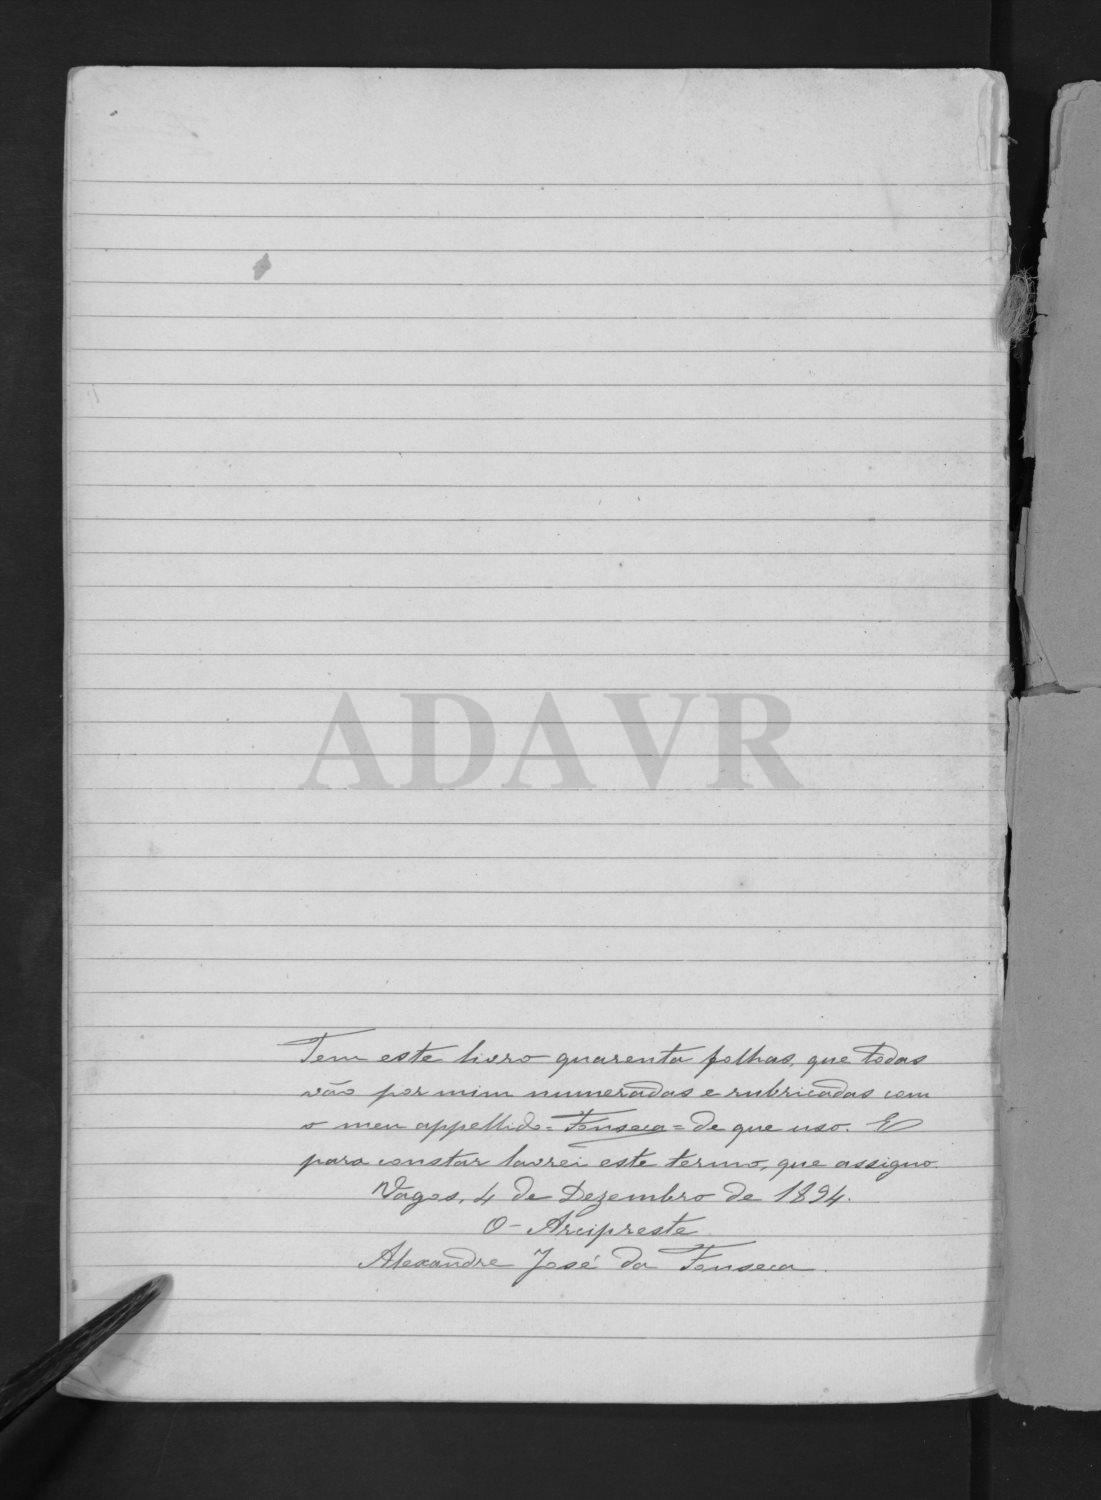 ADAVR
Tem este livro quarenta folhas, que todas
vão por mim numeradas e rubricadas com
o meu appellido = Fonseca = de que uso. E
para constar lavrei este termo, que assigno.
Vagos, 4 de Dezembro de 1894.
O Arcipreste
Alexandre José da Fonseca.